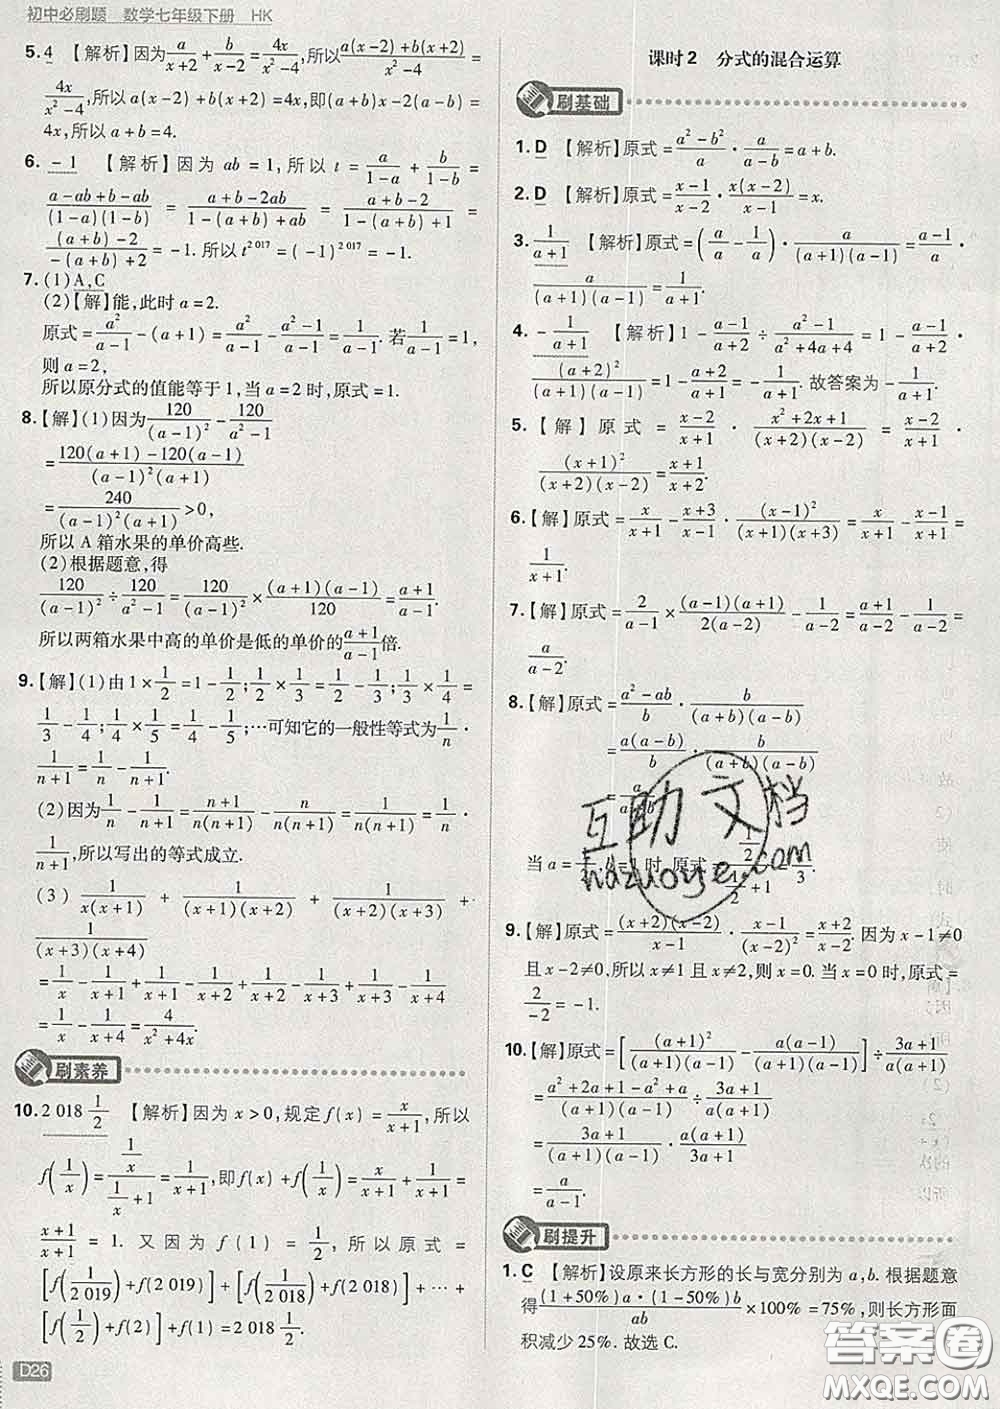 初中必刷题 数学七年级下册 HK
5. 4 【解析】因为a/(x+2)+b/(x-2)=4x/(x²-4),所以(a(x-2)+b(x+2))/(x²-4)=
4x/(x²-4),所以a(x-2)+b(x+2)=4x,即(a+b)x-2(a-b)=
4x,所以a+b=4.
6. -1 【解析】因为ab=1,所以t=a/(1-a)+b/(1-b)=
(a-ab+b-ab)/((1-a)(1-b))=(a+b-2ab)/(1-(a+b)+ab)=(a+b-2)/(1-(a+b)+1)=
((a+b)-2)/(-(a+b)+2)=-1. 所以t²⁰¹⁷=(-1)²⁰¹⁷=-1.
7. (1)A,C
(2)【解】能,此时a=2.
原式=a²/(a-1)-(a+1)=a²/(a-1)-(a²-1)/(a-1)=1/(a-1). 若1/(a-1)=1,
则a=2,
所以原分式的值能等于1,当a=2时,原式=1.
8.【解】(1)因为120/(a-1)²-120/(a²-1)
=(120(a+1)-120(a-1))/((a-1)²(a+1))
=240/((a-1)²(a+1))>0,
所以A箱水果的单价高些.
(2)根据题意,得
120/(a-1)²÷120/(a²-1)=120/(a-1)²×((a+1)(a-1))/120=(a+1)/(a-1).
所以两箱水果中高的单价是低的单价的(a+1)/(a-1)倍.
9.【解】(1)由1×1/2=1-1/2;1/2×1/3=1/2-1/3;1/3×1/4=
1/3-1/4;1/4×1/5=1/4-1/5;…可知它的一般性等式为1/n·
1/(n+1)=1/n-1/(n+1).
(2)因为1/n-1/(n+1)=(n+1)/(n(n+1))-n/(n(n+1))=1/(n(n+1))=1/n·
1/(n+1),所以写出的等式成立.
(3)1/(x(x+1))+1/((x+1)(x+2))+1/((x+2)(x+3))+
1/((x+3)(x+4))
=1/x-1/(x+1)+1/(x+1)-1/(x+2)+1/(x+2)-1/(x+3)+1/(x+3)-1/(x+4)
=1/x-1/(x+4)=4/(x²+4x).
刷素养
10. 2 018 1/2 【解析】因为x>0,规定f(x)=x/(x+1),所以
f(1/x)=(1/x)/(1/x+1)=1/(x+1),即f(x)+f(1/x)=x/(x+1)+1/(x+1)=
(x+1)/(x+1)=1. 又因为f(1)=1/2,所以原式=
[f(1/2 019)+f(2 019)]+[f(1/2 018)+f(2 018)]+…+
[f(1/2)+f(2)]+f(1)=2 018 1/2.
D26
课时2 分式的混合运算
刷基础
1. D 【解析】原式=(a²-b²)/a·a/(a-b)=a+b.
2. D 【解析】原式=(x-1)/(x-2)·x(x-2)/(x-1)=x.
3. 1/(a+1) 【解析】原式=(a/a-1/a)·a/((a+1)(a-1))=(a-1)/a·
a/((a+1)(a-1))=1/(a+1).
4. -1/(a+1) 【解析】1-(a-1)/(a+2)÷(a²-1)/(a²+4a+4)=1-(a-1)/(a+2)·
(a+2)²/((a+1)(a-1))=1-(a+2)/(a+1)=-1/(a+1). 故答案为-1/(a+1).
5.【解】原式=(x-2)/(x+1)·(x²+2x+1)/((x+2)(x-2))=(x-2)/(x+1)·
(x+1)²/((x+2)(x-2))=(x+1)/(x+2).
6.【解】原式=x/(x+1)-(x+3)/(x-1)·(x-1)²/((x+1)(x+3))=x/(x+1)-(x-1)/(x+1)=
1/(x+1).
7.【解】原式=2/(a-1)×((a-1)(a+1))/(2(a-2))-1/(a-2)=(a+1)/(a-2)-1/(a-2)=
a/(a-2).
8.【解】原式=(a²-ab)/b·b/((a+b)(a-b))
=a(a-b)/b·b/((a+b)(a-b))
=a/(a+b).
当a=1/2,b=1时,原式=(1/2)/(1/2+1)=1/3.
9.【解】原式=((x+2)(x-2))/(x-1)·(x-1)/(x-2)²=(x+2)/(x-2). 因为x-1≠0
且x-2≠0,所以x≠1且x≠2,则x=0. 当x=0时,原式=
2/(-2)=-1.
10.【解】原式=[(a+1)²/((a+1)(a-1))-a(a-1)/((a+1)(a-1))]÷(3a+1)/(a(a+1))
=(a²+2a+1-a²+a)/((a+1)(a-1))÷(3a+1)/(a(a+1))
=(3a+1)/((a+1)(a-1))·a(a+1)/(3a+1)
=a/(a-1).
刷提升
1. C 【解析】设原来长方形的长与宽分别为a,b. 根据题意
得((1+50%)a·(1-50%)b)/ab×100%=75%,则长方形面
积减少25%. 故选C.
互助文档
huzuoye.com
答案圈
MXQE.COM